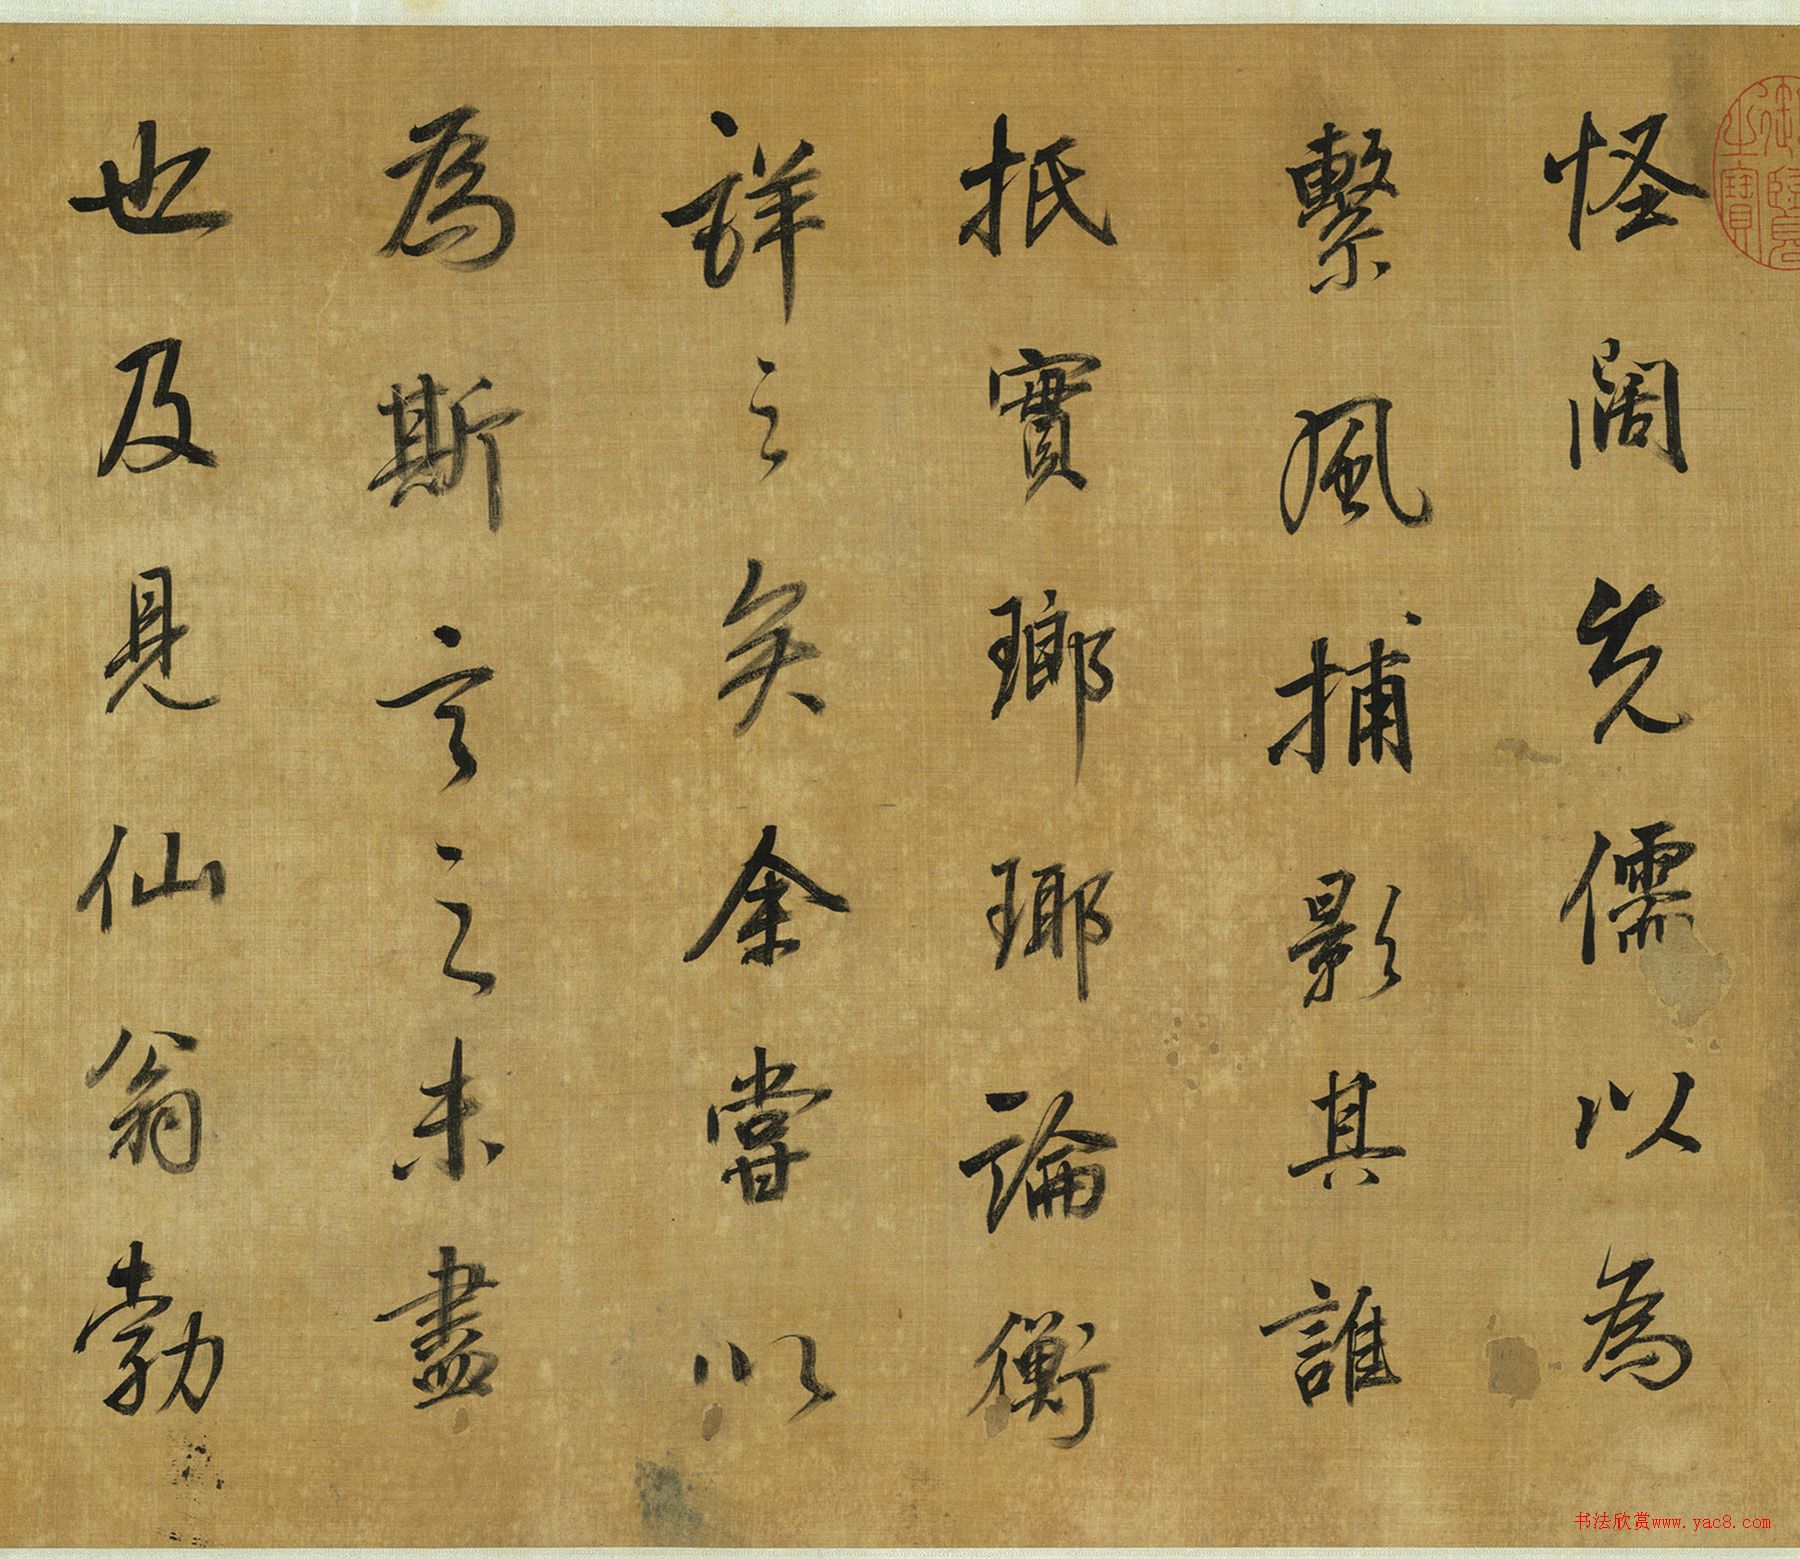 怪阔先儒以為
繫風捕影其誰
抵實瑯瑘論衡
詳之矣余嘗以
為斯言之未盡
也及見仙翁勃
御覽之寶
书法欣赏www.yac8.com